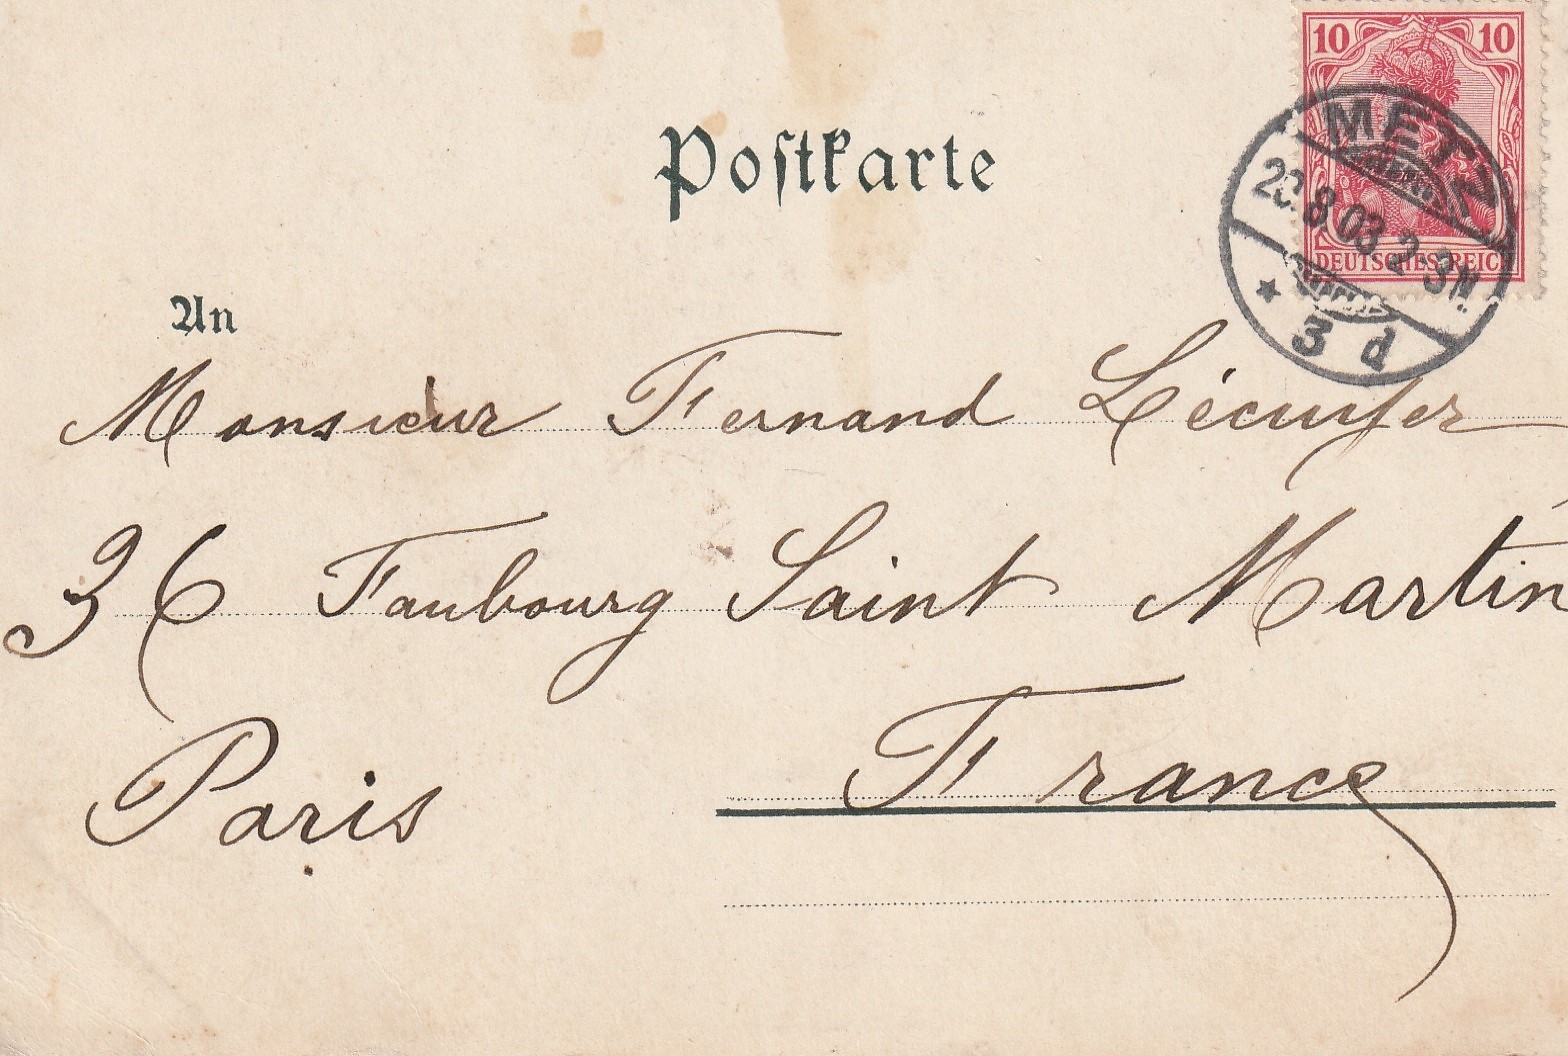 10 10
METZ
8.03. 2-3N.
DEUTSCHES REICH
3 d
Postkarte
An
Monsieur Fernand Lécuyer
36 Faubourg Saint Martin
Paris France